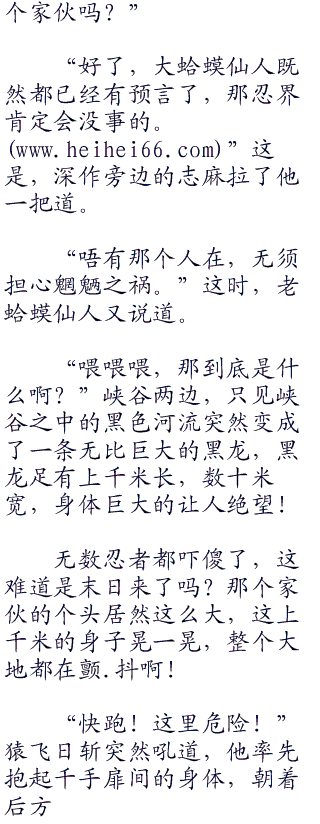 个家伙吗？”
“好了，大蛤蟆仙人既
然都已经有预言了，那忍界
肯定会没事的。
(www.heihei66.com)”这
是，深作旁边的志麻拉了他
一把道。
“唔有那个人在，无须
担心魍魉之祸。”这时，老
蛤蟆仙人又说道。
“喂喂喂，那到底是什
么啊？”峡谷两边，只见峡
谷之中的黑色河流突然变成
了一条无比巨大的黑龙，黑
龙足有上千米长，数十米
宽，身体巨大的让人绝望！
无数忍者都吓傻了，这
难道是末日来了吗？那个家
伙的个头居然这么大，这上
千米的身子晃一晃，整个大
地都在颤.抖啊！
“快跑！这里危险！”
猿飞日斩突然吼道，他率先
抱起千手扉间的身体，朝着
后方